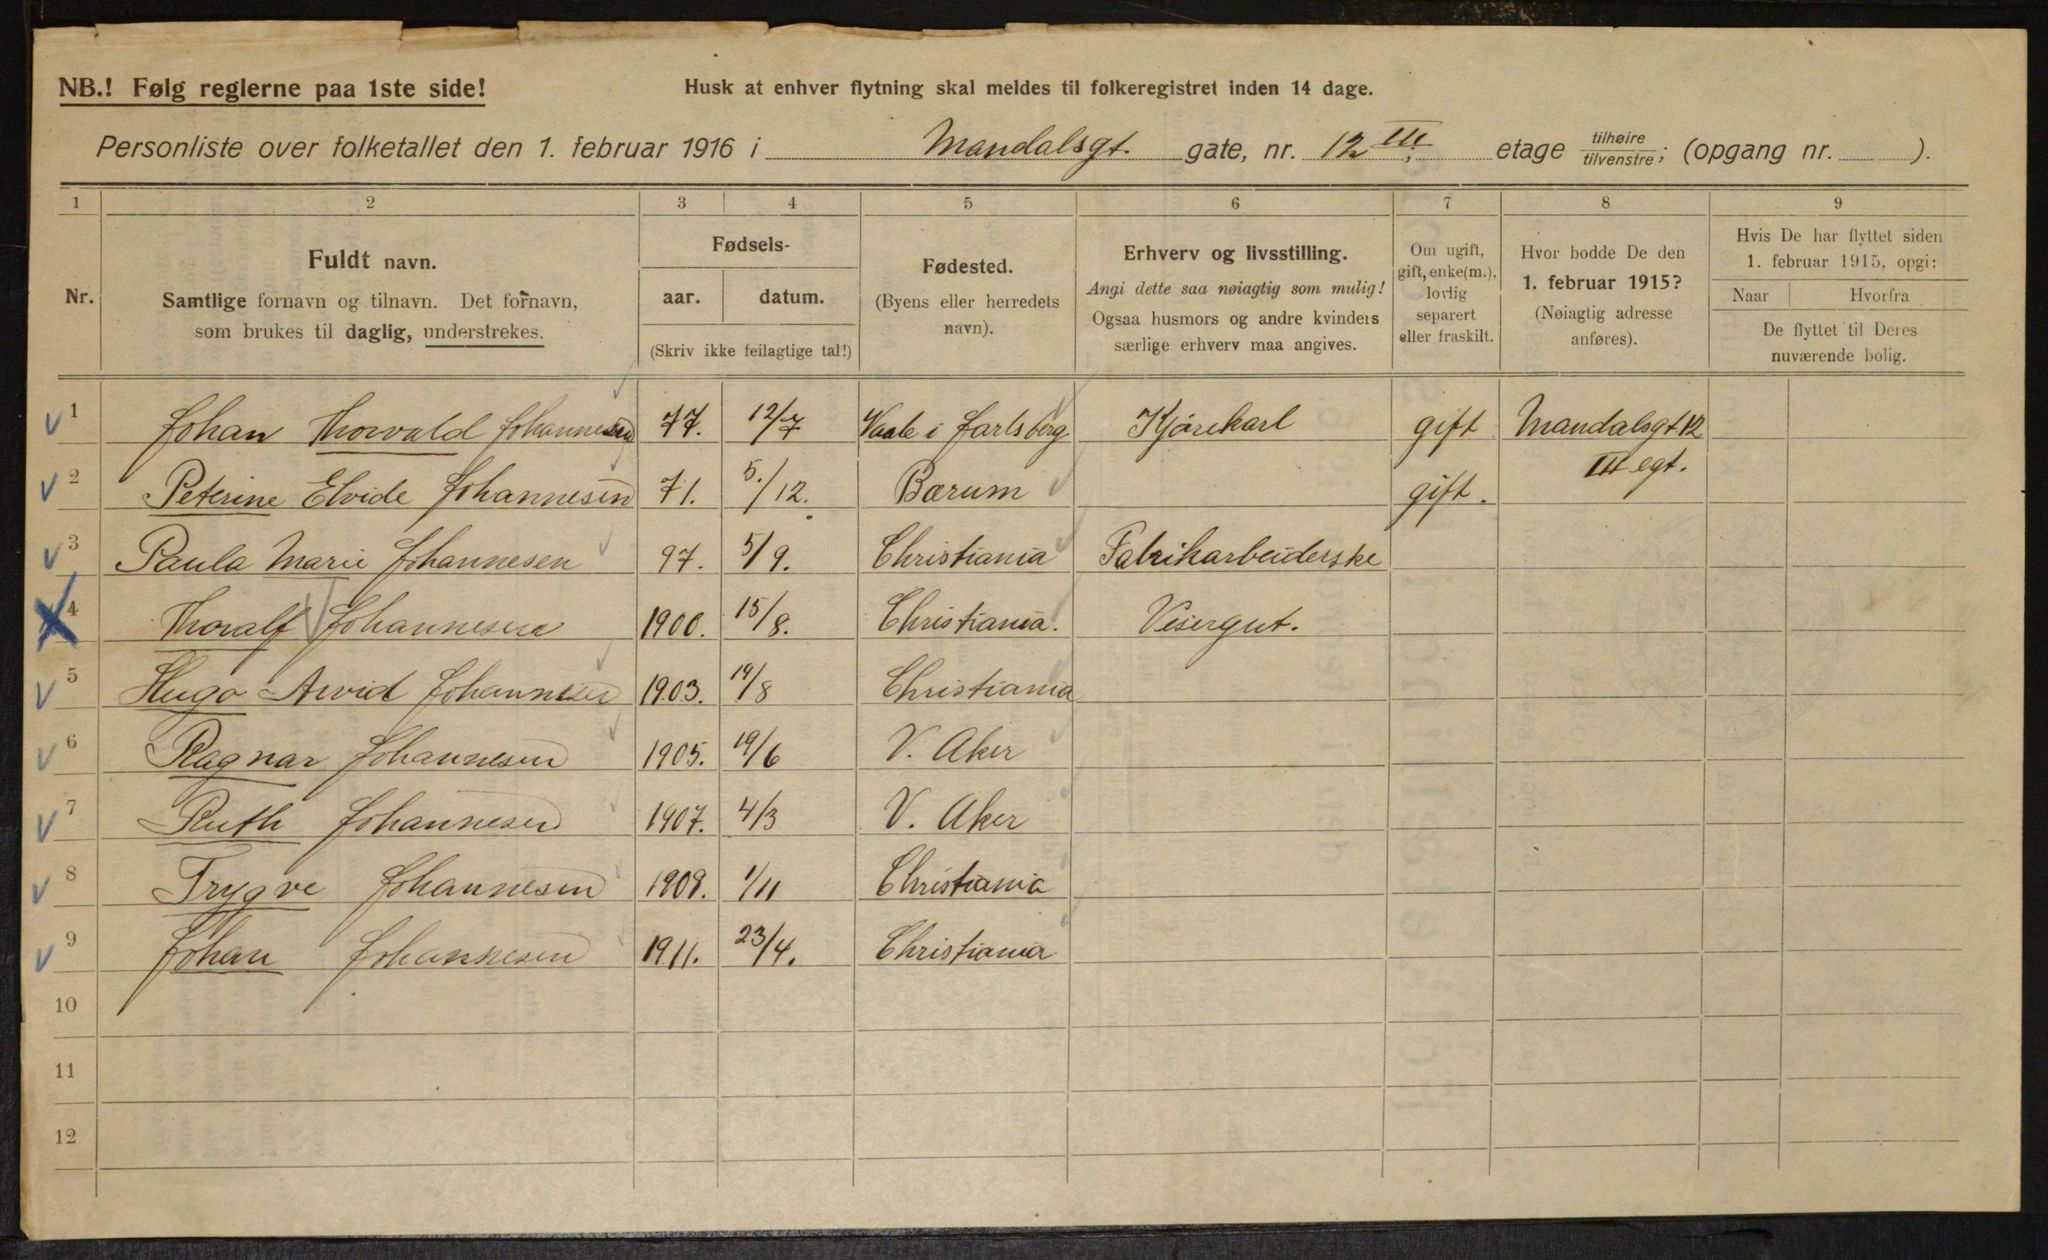 NB.! Følg reglerne paa 1ste side!
Husk at enhver flytning skal meldes til folkeregistret inden 14 dage.
Personliste over folketallet den 1. februar 1916 i Mandalsgt. gate, nr. 12 III, etage tilhøire / tilvenstre; (opgang nr. ).
1 2 3 4 5 6 7 8 9
Nr.
Fuldt navn.
Samtlige fornavn og tilnavn. Det fornavn,
som brukes til daglig, understrekes.
Fødsels-
aar. datum.
(Skriv ikke feilagtige tal!)
Fødested.
(Byens eller herredets
navn).
Erhverv og livsstilling.
Angi dette saa nøiagtig som mulig!
Ogsaa husmors og andre kvinders
særlige erhverv maa angives.
Om ugift,
gift, enke(m.),
lovlig
separert
eller fraskilt.
Hvor bodde De den
1. februar 1915?
(Nøiagtig adresse
anføres).
Hvis De har flyttet siden
1. februar 1915, opgi:
Naar Hvorfra
De flyttet til Deres
nuværende bolig.
1 Johan Thorvald Johannesen 77. 12/7 Vaale i Jarlsberg Kjørekarl gift Mandalsgt 12
III egt.
2 Peterine Elvide Johannesen 71. 5./12. Bærum gift.
3 Paula Marie Johannesen 97. 5/9. Christiania Fabrikarbeiderske
4 Thoralf Johannesen 1900. 15/8. Christiania. Visergut.
5 Hugo Arvid Johannesen 1903. 19/8 Christiania
6 Ragnar Johannesen 1905. 19/6 V. Aker
7 Ruth Johannesen 1907. 4/3 V. Aker
8 Trygve Johannesen 1908. 1/11 Christiania
9 Johan Johannesen 1911. 23/4. Christiania
10
11
12